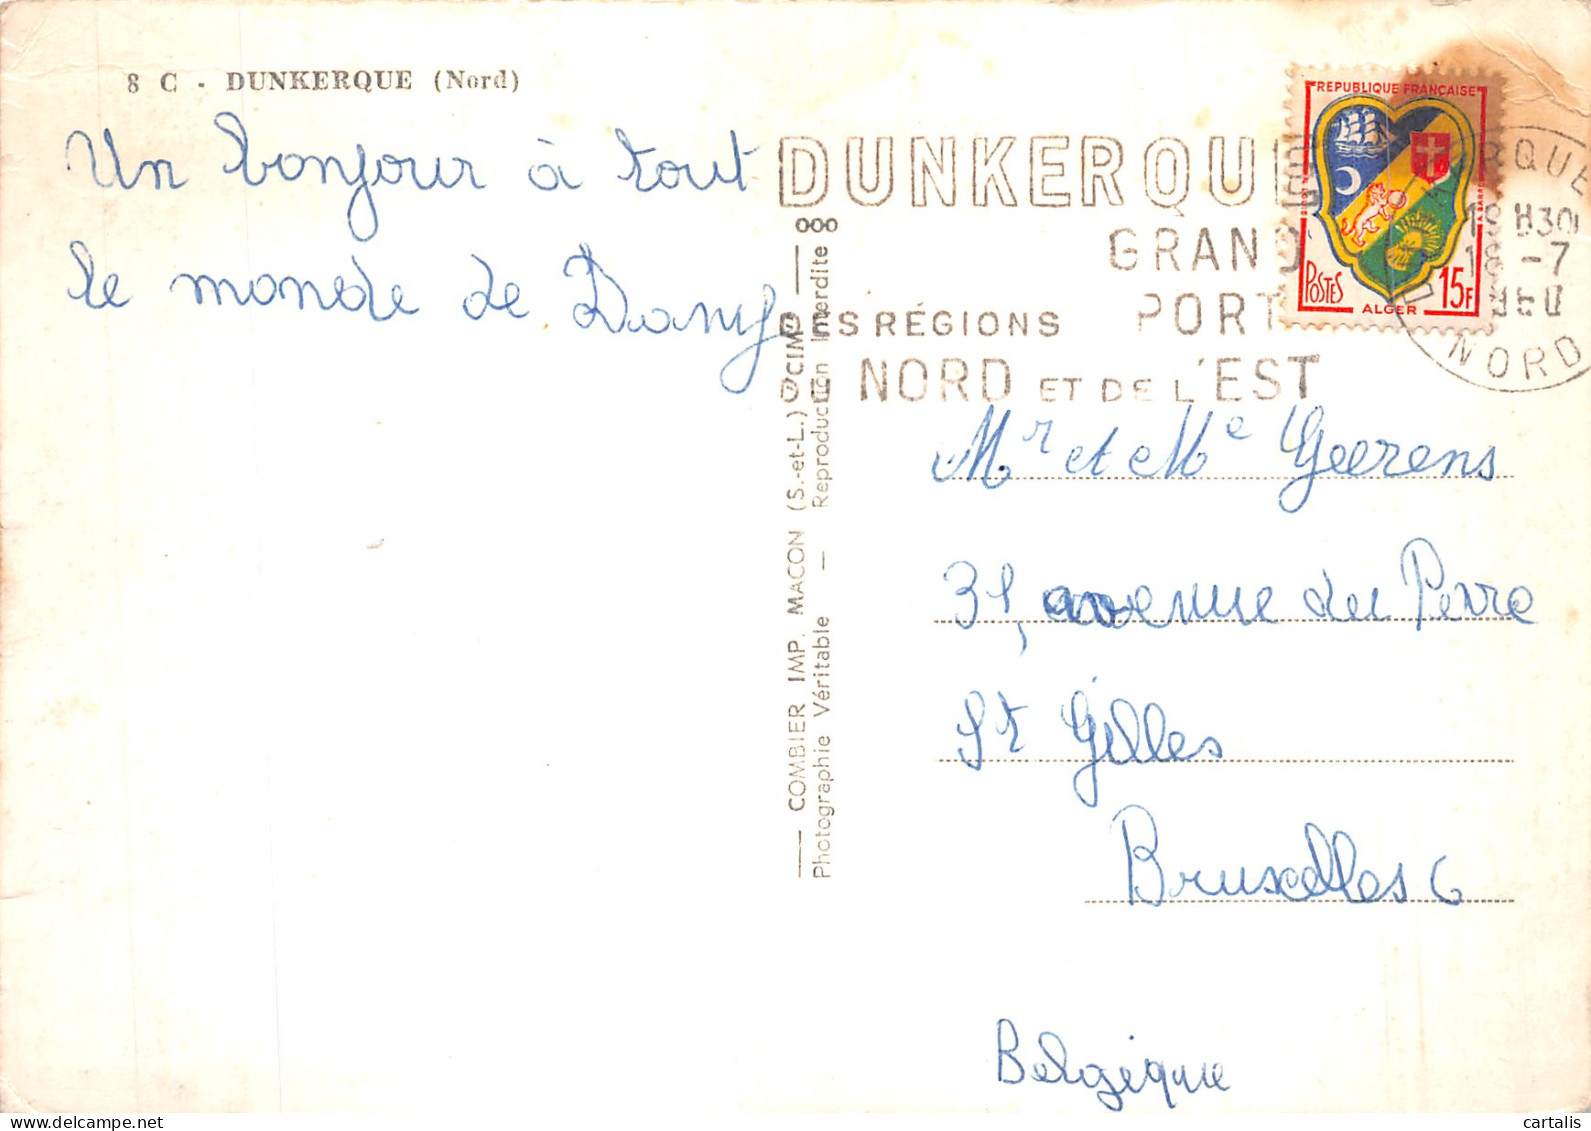 8 C - DUNKERQUE (Nord)
Un bonjour à tout
le monde de Dany
DUNKERQUE
GRAND
PORT
DES RÉGIONS
NORD ET DE L'EST
REPUBLIQUE FRANÇAISE
POSTES
15F
ALGER
18H30
-7
NORD
COMBIER IMP. MACON (S.-et-L.) CIM
Photographie Véritable — Reproduction Interdite
Mr et Me Geerens
31, avenue du
St Gilles
Bruxelles 6
Belgique
cartalis